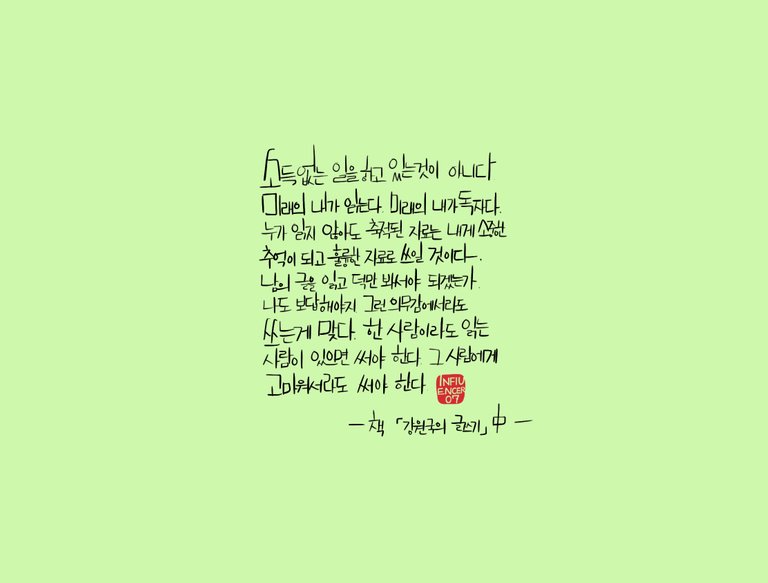 소득 없는 일을 하고 있는것이 아니다
미래의 내가 읽는다. 미래의 내가 독자다.
누가 읽지 않아도 축적된 자료는 내게 소중한
추억이 되고 훌륭한 자료로 쓰일 것이다.
남의 글을 읽고 덕만 봐서야 되겠는가.
나도 보답해야지 그런 의무감에서라도
쓰는게 맞다. 한 사람이라도 읽는
사람이 있으면 써야 한다. 그 사람에게
고마워서라도 써야 한다
INFIU
ENCER
07
— 책 「강원국의 글쓰기」 中 —